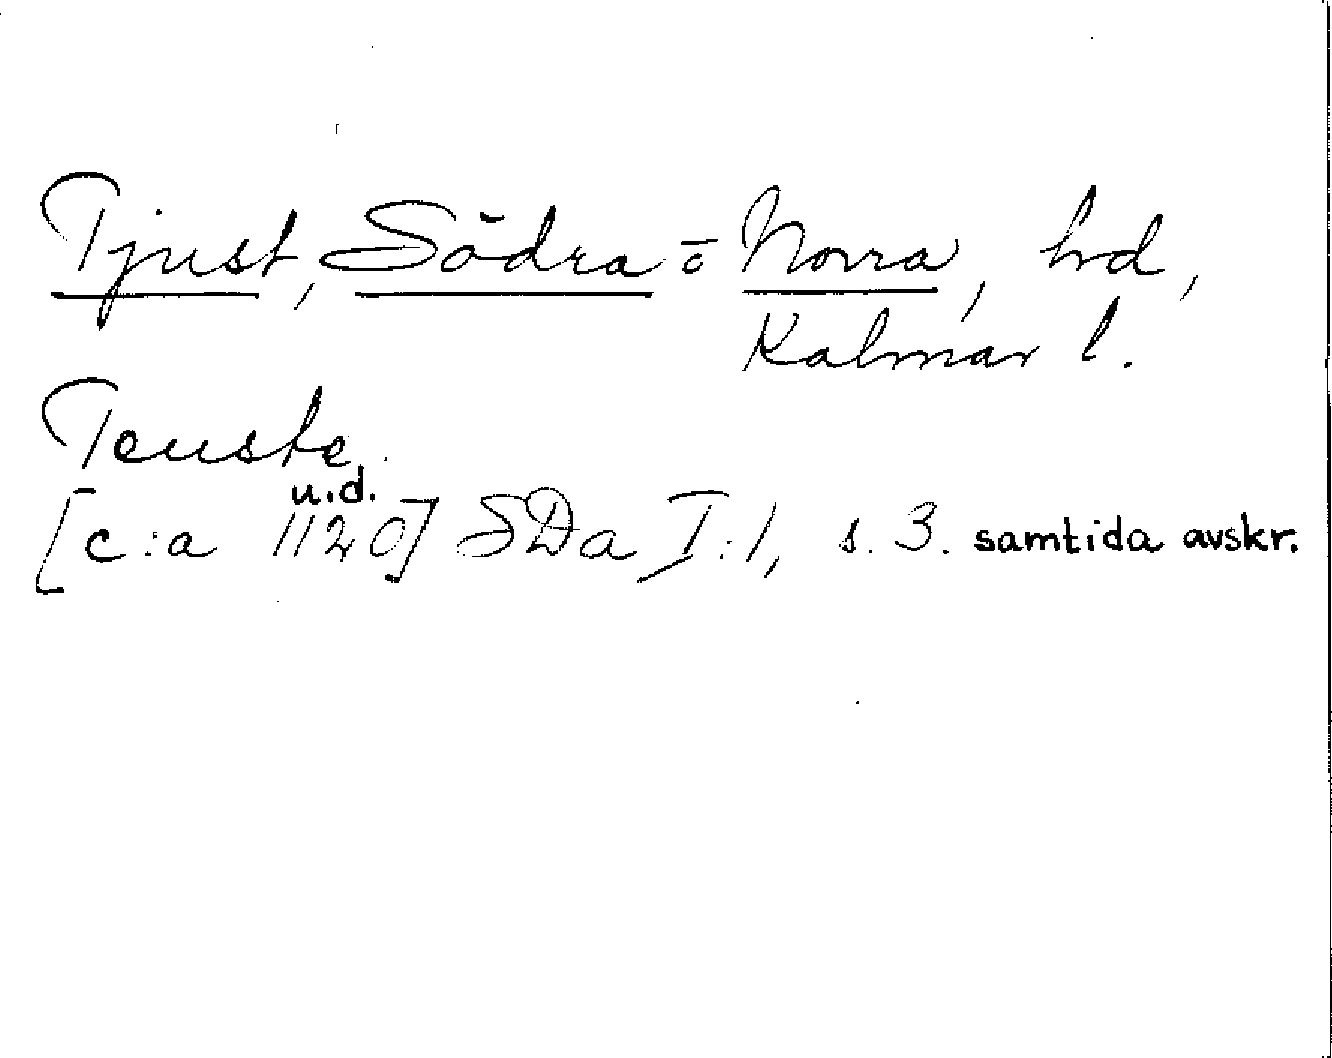 Tjust, Södra o Norra, hd,
Kalmar l.
Teuste
u.d.
[c:a 1120] SDa I:1, s. 3. samtida avskr.